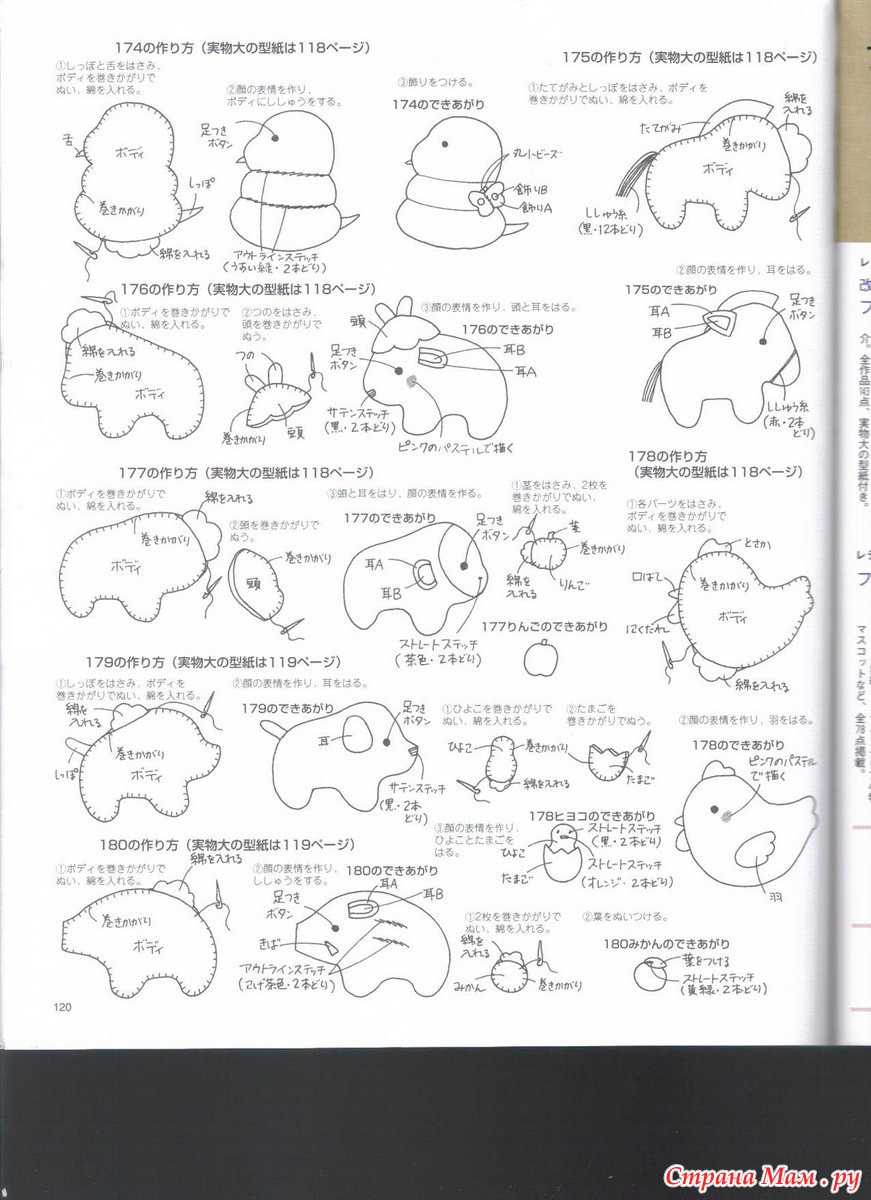 174の作り方（実物大の型紙は118ページ）
①しっぽと舌をはさみ、
ボディを巻きかがりで
ぬい、綿を入れる。
②顔の表情を作り、
ボディにししゅうをする。
③飾りをつける。
174のできあがり
舌
ボディ
しっぽ
巻きかがり
綿を入れる
足つき
ボタン
アウトラインステッチ
(うすい緑・2本どり)
丸小ビーズ
飾りB
飾りA
175の作り方（実物大の型紙は118ページ）
①たてがみとしっぽをはさみ、ボディを
巻きかがりでぬい、綿を入れる。
綿を
入れる
たてがみ
巻きかがり
ボディ
ししゅう糸
(黒・12本どり)
②顔の表情を作り、耳をはる。
175のできあがり
耳A
耳B
足つき
ボタン
ししゅう糸
(赤・2本
どり)
176の作り方（実物大の型紙は118ページ）
①ボディを巻きかがりで
ぬい、綿を入れる。
②つのをはさみ、
頭を巻きかがりで
ぬう。
③顔の表情を作り、頭と耳をはる。
176のできあがり
綿を入れる
巻きかがり
ボディ
つの
巻きかがり
頭
頭
足つき
ボタン
耳B
耳A
サテンステッチ
(黒・2本どり)
ピンクのパステルで描く
177の作り方（実物大の型紙は118ページ）
①ボディを巻きかがりで
ぬい、綿を入れる。
綿を入れる
巻きかがり
ボディ
②頭を巻きかがりで
ぬう。
巻きかがり
頭
③頭と耳をはり、顔の表情を作る。
177のできあがり
足つき
ボタン
耳A
耳B
ストレートステッチ
(茶色・2本どり)
①茎をはさみ、2枚を
巻きかがりでぬい、
綿を入れる。
茎
巻きかがり
綿を
入れる
りんご
177りんごのできあがり
178の作り方
（実物大の型紙は118ページ）
①各パーツをはさみ、
ボディを巻きかがりで
ぬい、綿を入れる。
とさか
口ばし
巻きかがり
ボディ
にくたれ
綿を入れる
179の作り方（実物大の型紙は119ページ）
①しっぽをはさみ、ボディを
巻きかがりでぬい、綿を入れる。
綿を
入れる
巻きかがり
しっぽ
ボディ
②顔の表情を作り、耳をはる。
179のできあがり
足つき
ボタン
耳
サテンステッチ
(黒・2本
どり)
①ひよこを巻きかがりで
ぬい、綿を入れる。
ひよこ
巻きかがり
綿を入れる
②たまごを
巻きかがりでぬう。
たまご
②顔の表情を作り、羽をはる。
178のできあがり
ピンクのパステル
で描く
羽
178ヒヨコのできあがり
③顔の表情を作り、
ひよことたまごを
はる。
ストレートステッチ
(黒・2本どり)
ひよこ
たまご
ストレートステッチ
(オレンジ・2本どり)
180の作り方（実物大の型紙は119ページ）
①ボディを巻きかがりで
ぬい、綿を入れる。
綿を入れる
巻きかがり
ボディ
②顔の表情を作り、
ししゅうをする。
180のできあがり
耳A
耳B
足つき
ボタン
きば
アウトラインステッチ
(こげ茶色・2本どり)
①2枚を巻きかがりで
ぬい、綿を入れる。
綿を
入れる
みかん
巻きかがり
②葉をぬいつける。
180みかんのできあがり
葉をつける
ストレートステッチ
(黄緑・2本どり)
120
介。全作品143点、実物大の型紙付き。
マスコットなど、全78点掲載。
Страна Мам.ру